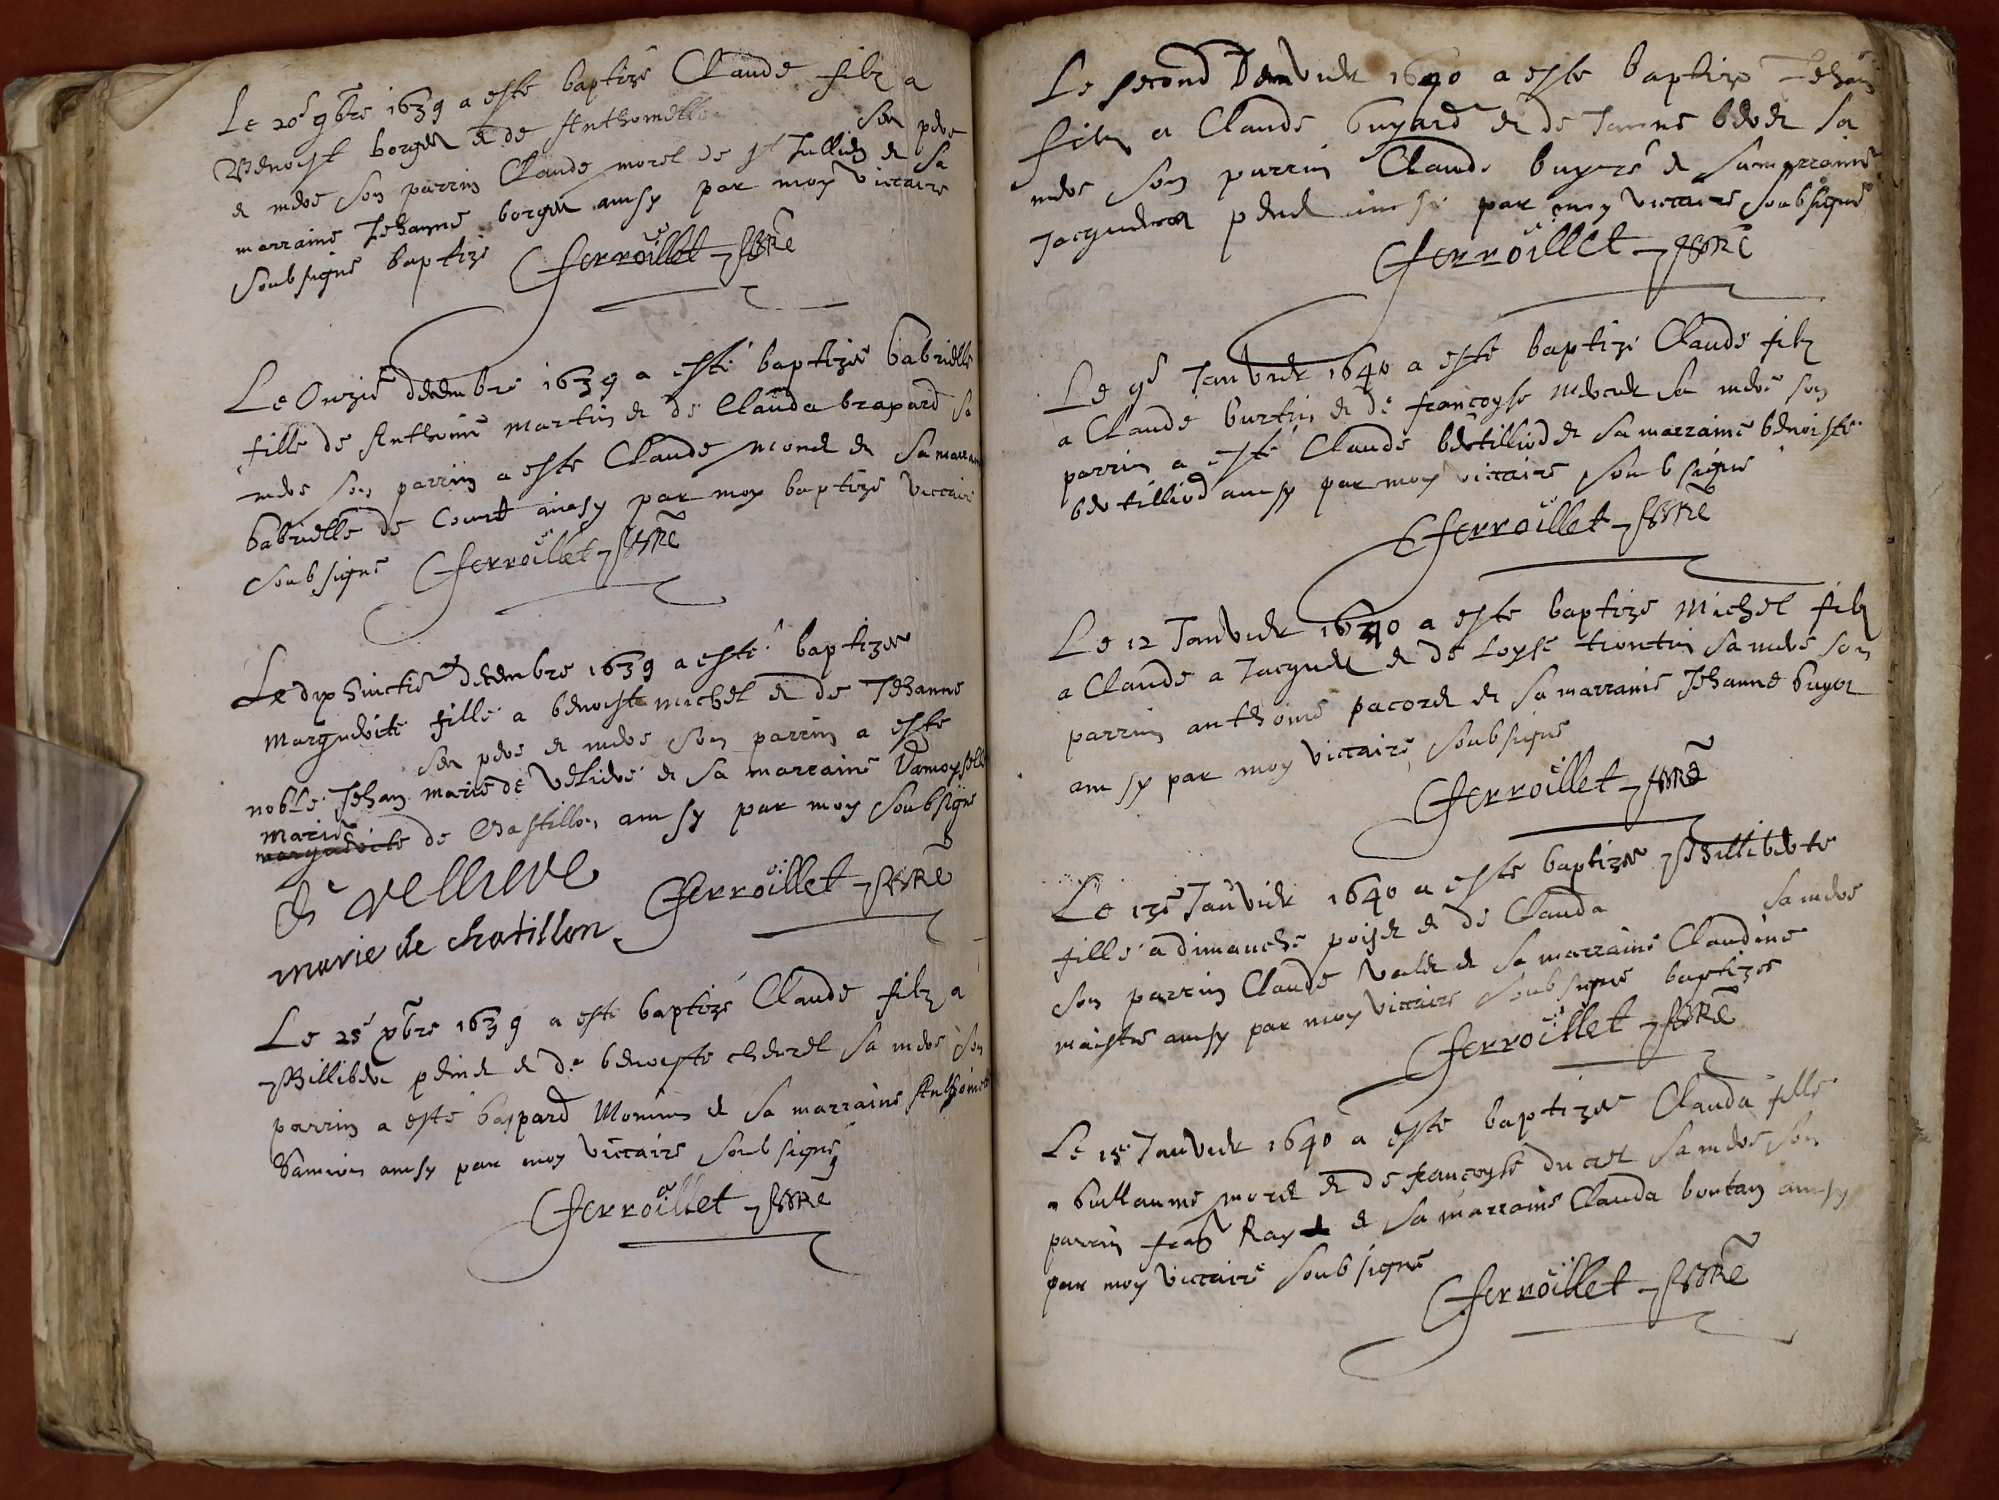 Le 20e 9bre 1639 a este baptizé Claude filz a
Benoist borget et de Anthoinette ses pere
et mere son parrin Claude morel de st Jullien et sa
marraine Jehanne borget ainsy par moy viccaire
soubsigné baptizé
Ferroillet pbre
Le Onziè decembre 1639 a esté baptizée Gabrielle
fille de Anthoine martin et de Clauda brapard sa
mere son parrin a esté Claude monet et sa marraine
Gabrielle de Court ainsy par moy baptizé viccaire
soubsigné Ferroillet pbre
Le dix huictiè decembre 1639 a esté baptizée
Marguerite fille a benoist michel et de Jehanne
ses pere et mere son parrin a esté
noble Jehan marie de Velieve et sa marraine Damoyselle
marie
marguerite de Chastillon ainsy par moy soubsigné
vellieve Ferroillet pbre
marie de chatillon
Le 25e xbre 1639 a esté baptizé Claude filz a
Phillibert et de benoiste sa mere son
parrin a esté Gaspard Monin et sa marraine Anthoinette
ainsy par moy viccaire soubsigné
Ferroillet pbre
Le second Janvier 1640 a esté baptizé Jehan
filz a Claude buyard et de Janne sa
mere son parrin Claude et sa marraine
ainsy par moy viccaire soubsigné
Ferroillet pbre
Le 9e Janvier 1640 a esté baptizé Claude filz
a Claude burtin et de françoyse sa mere son
parrin a esté Claude bertilliod et sa marraine benoiste
bertilliod ainsy par moy viccaire soubsigné
Ferroillet pbre
Le 12 Janvier 1640 a esté baptizé Michel filz
a Claude a Jacquet et de Loyse tiontin sa mere son
parrin anthoine pacoret et sa marraine Jehanne buyet
ainsy par moy viccaire soubsigné
Ferroillet pbre
Le 13e Janvier 1640 a esté baptizée Philliberte
fille a dimanche et de Clauda sa mere
son parrin Claude valet et sa marraine Claudine
maistre ainsy par moy viccaire soubsigné baptizée
Ferroillet pbre
Le 15e Janvier 1640 a esté baptizée Clauda fille
a Guillaume morel et de françoyse ducret sa mere son
parrin Ray et sa marraine Clauda boutan ainsy
par moy viccaire soubsigné
Ferroillet pbre